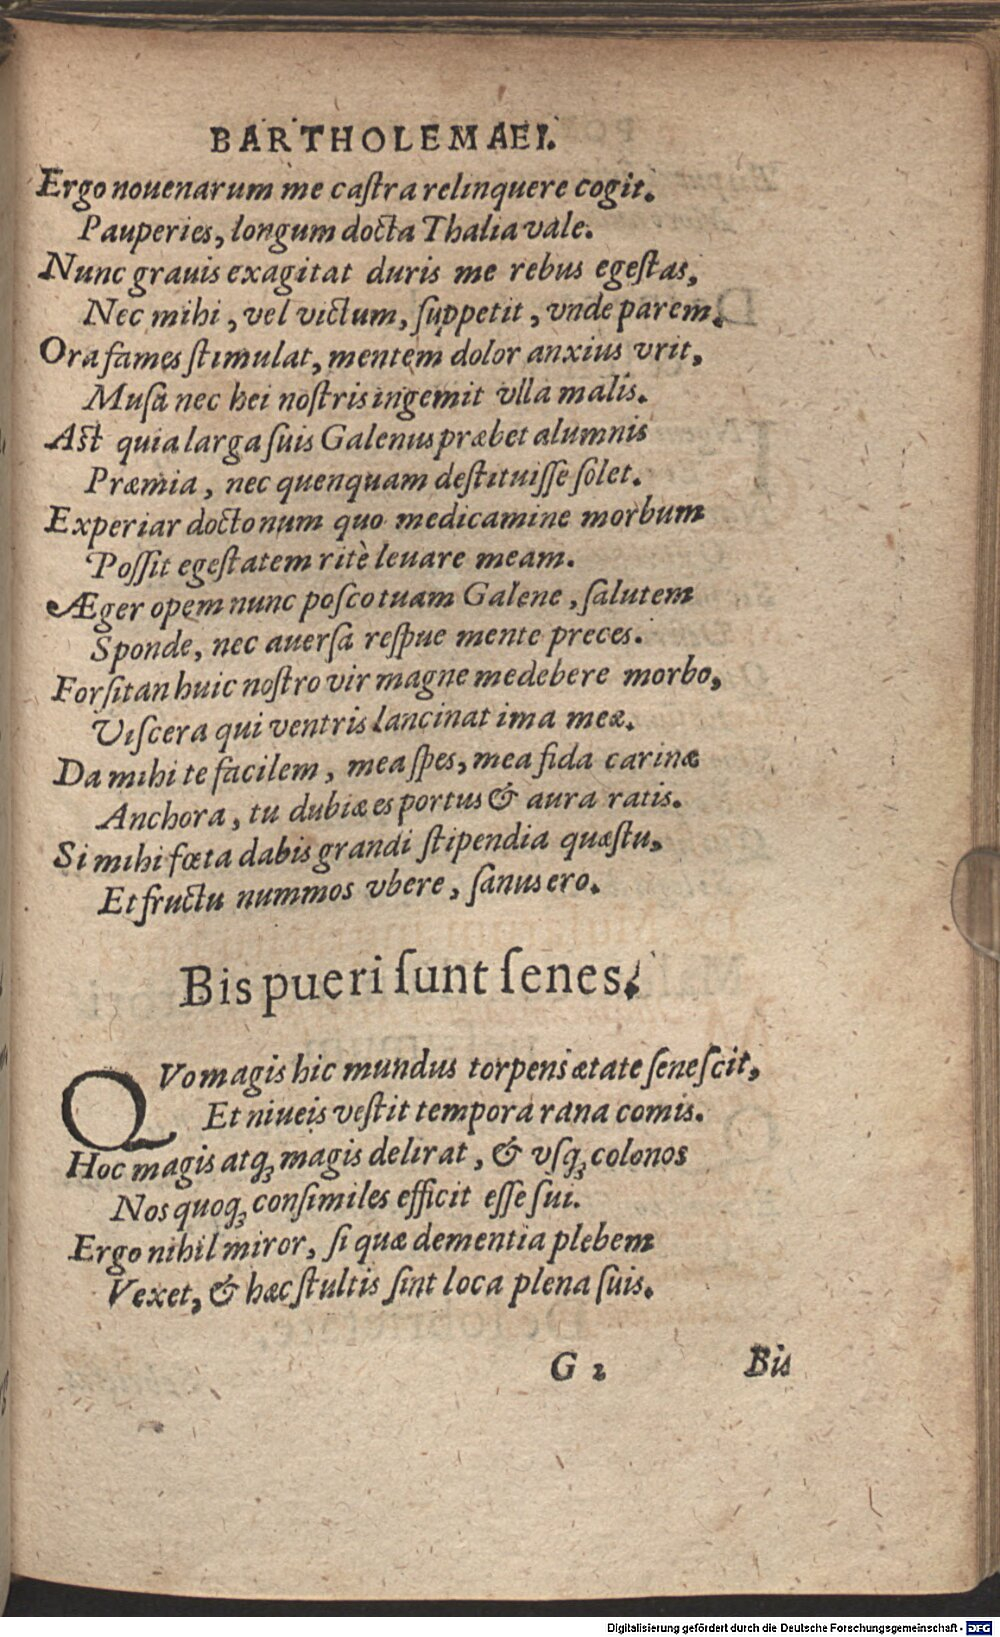 BARTHOLEMAEI.
Ergo nouenarum me caſtra relinquere cogit.
Pauperies, longum docta Thalia vale.
Nunc grauis exagitat duris me rebus egeſtas,
Nec mihi, vel victum, ſuppetit, vnde parem.
Ora fames ſtimulat, mentem dolor anxius vrit,
Muſa nec hei noſtris ingemit vlla malis.
Aſt quia larga ſuis Galenus præbet alumnis
Præmia, nec quenquam deſtituiſſe ſolet.
Experiar docto num quo medicamine morbum
Poſſit egeſtatem ritè leuare meam.
Æger opem nunc poſco tuam Galene, ſalutem
Sponde, nec auerſa reſpue mente preces.
Forſitan huic noſtro vir magne medebere morbo,
Viſcera qui ventris lancinat ima meæ.
Da mihi te facilem, mea ſpes, mea fida carinæ
Anchora, tu dubiæ es portus & aura ratis.
Si mihi fœta dabis grandi ſtipendia quæſtu,
Et fructu nummos vbere, ſanus ero.
Bis pueri ſunt ſenes.
QVo magis hic mundus torpens ætate ſeneſcit,
Et niueis veſtit tempora rana comis.
Hoc magis atq; magis delirat, & vſq; colonos
Nos quoq; conſimiles efficit eſſe ſui.
Ergo nihil miror, ſi quæ dementia plebem
Vexet, & hæc ſtultis ſint loca plena ſuis.
G 2 Bis
Digitalisierung gefördert durch die Deutsche Forschungsgemeinschaft - DFG